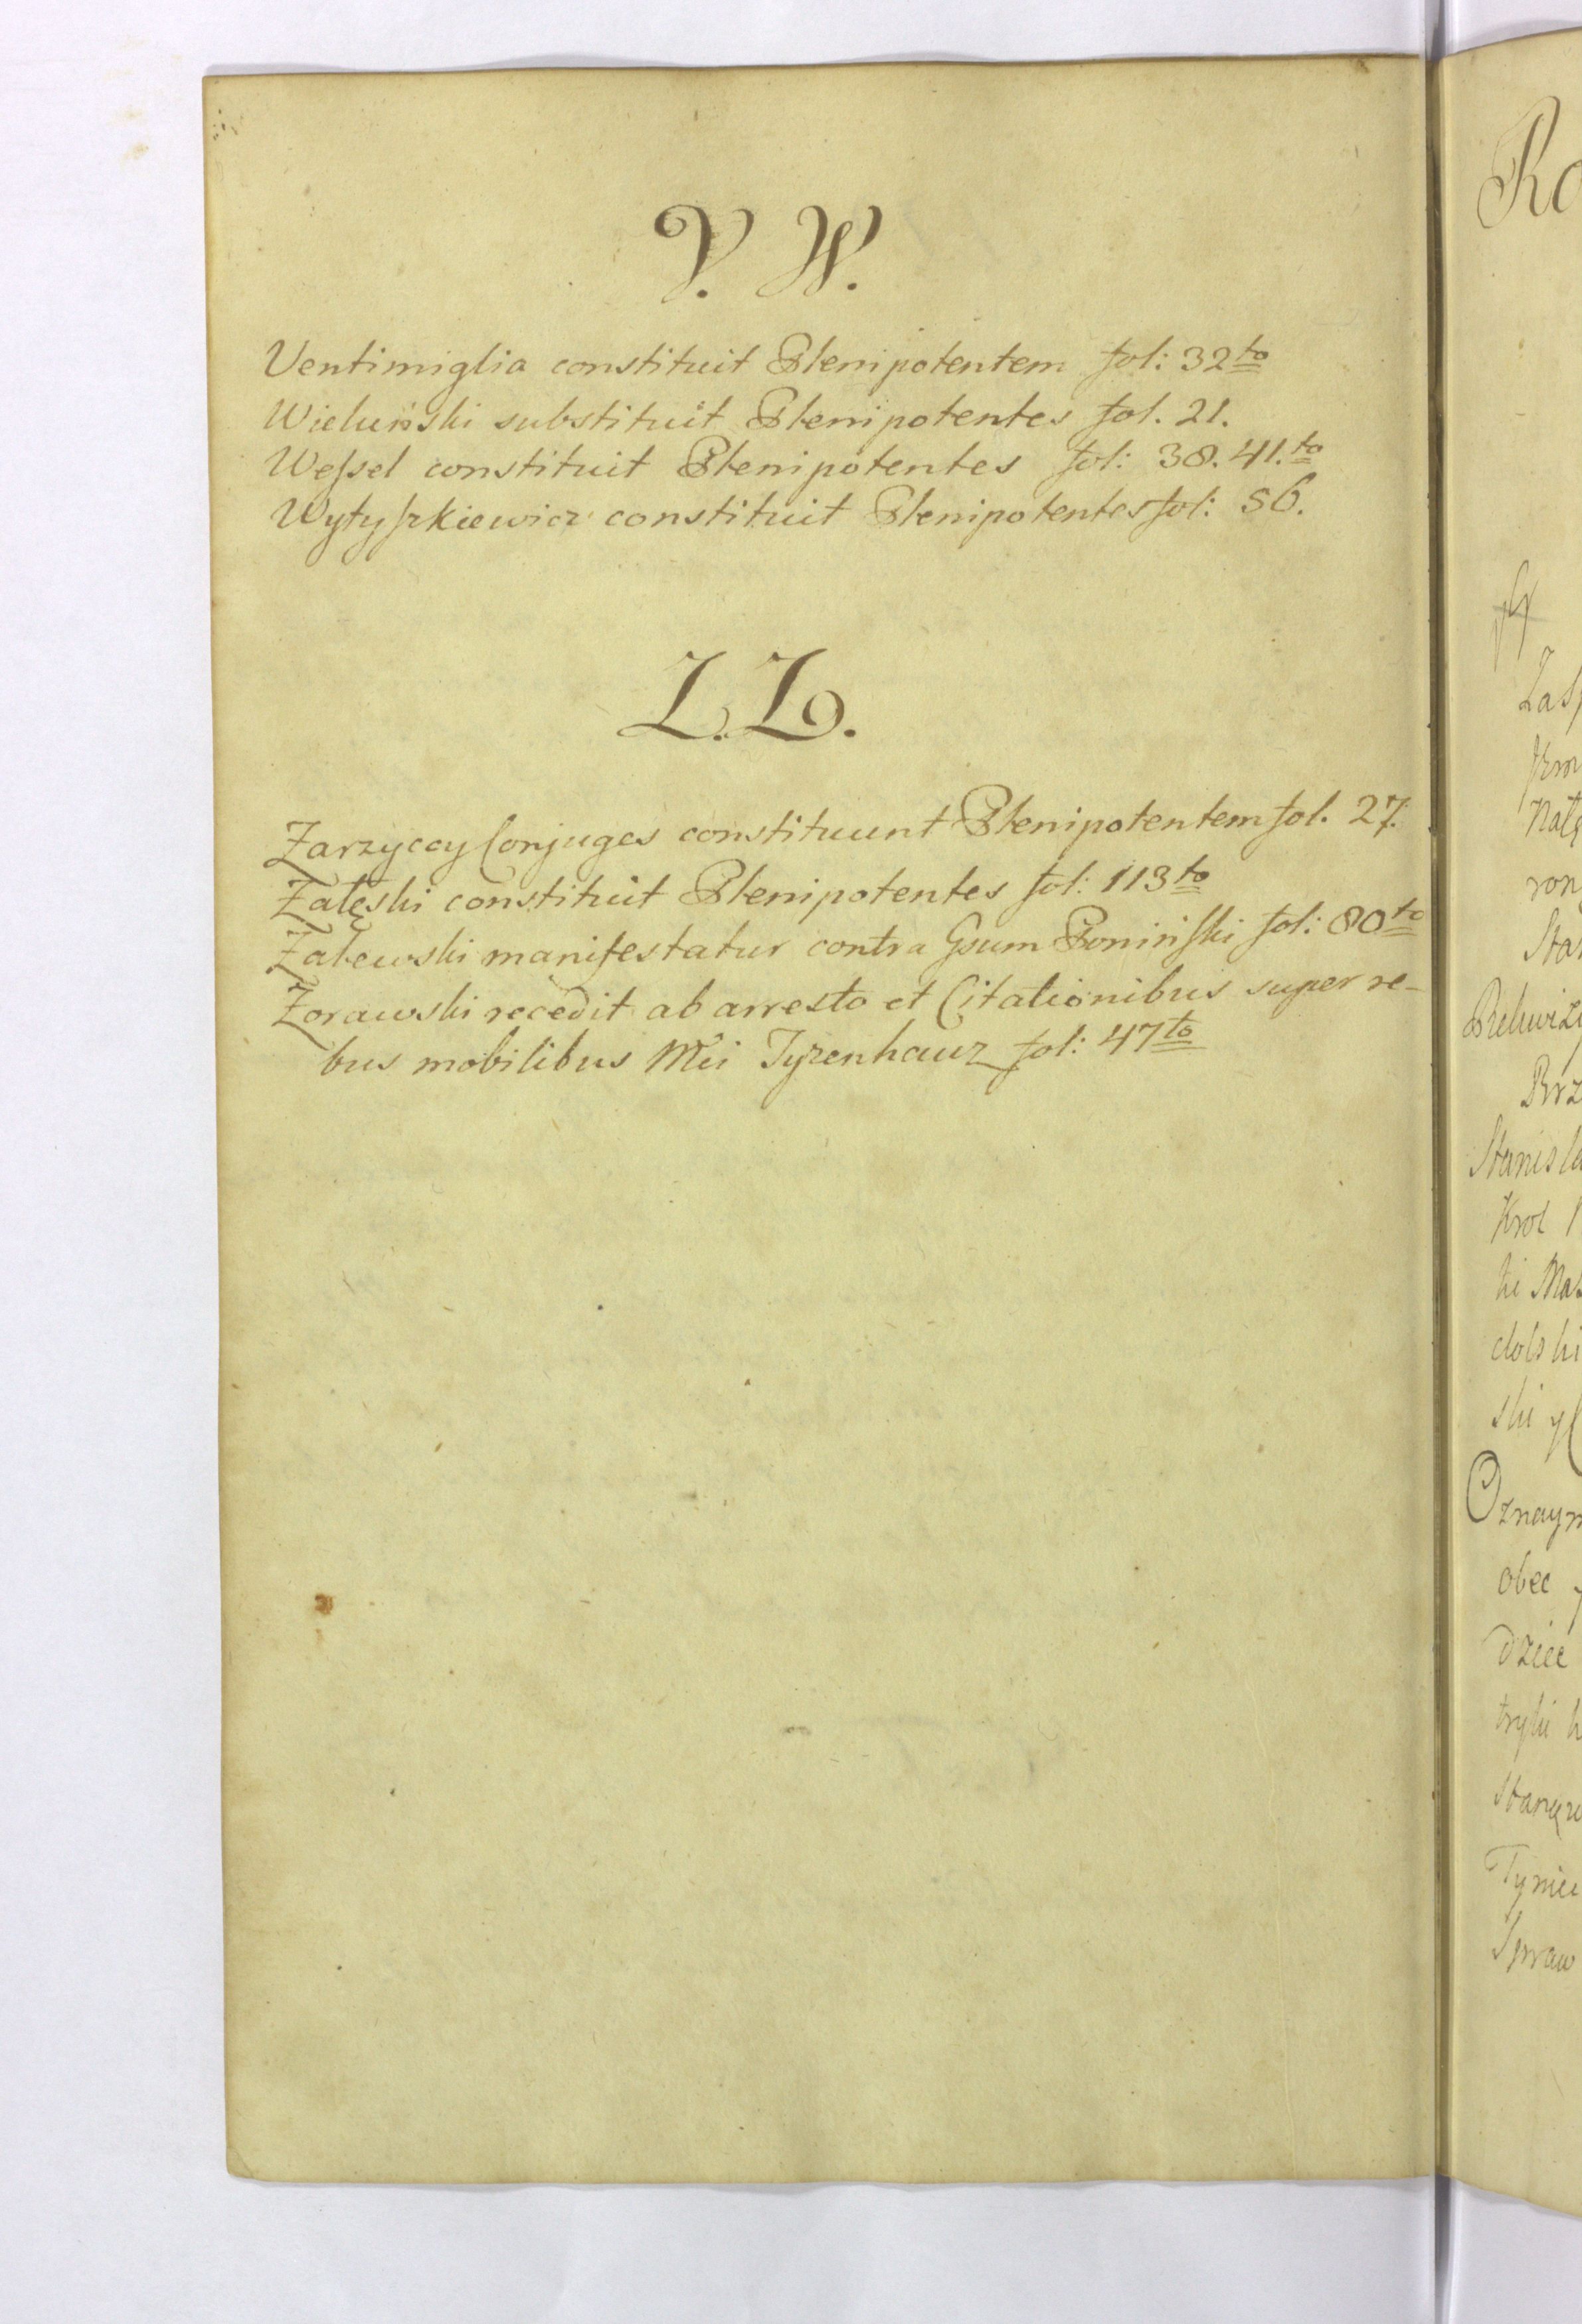 V. W.
Ventimiglia constituit Plenipotentem fol: 32to
Wieluński substituit Plenipotentes fol. 21.
Weſsel constituit Plenipotentes fol: 38. 41.to
Wytyſzkiewicz constituit Plenipotentes fol: 56.
Z. Z.
Zarzyccy Conjuges constituunt Plenipotentem fol. 27.
Zaleski constituit Plenipotentes fol: 113to
Zalewski manifestatur contra Gsum Poninſki fol: 80to
Zorawski recedit ab arresto et Citationibus super re-
bus mobilibus Mci Tyzenhauz fol: 47to
Stanisla
Krol
dolski
ski
Oznaym
obec
dziec
Spraw